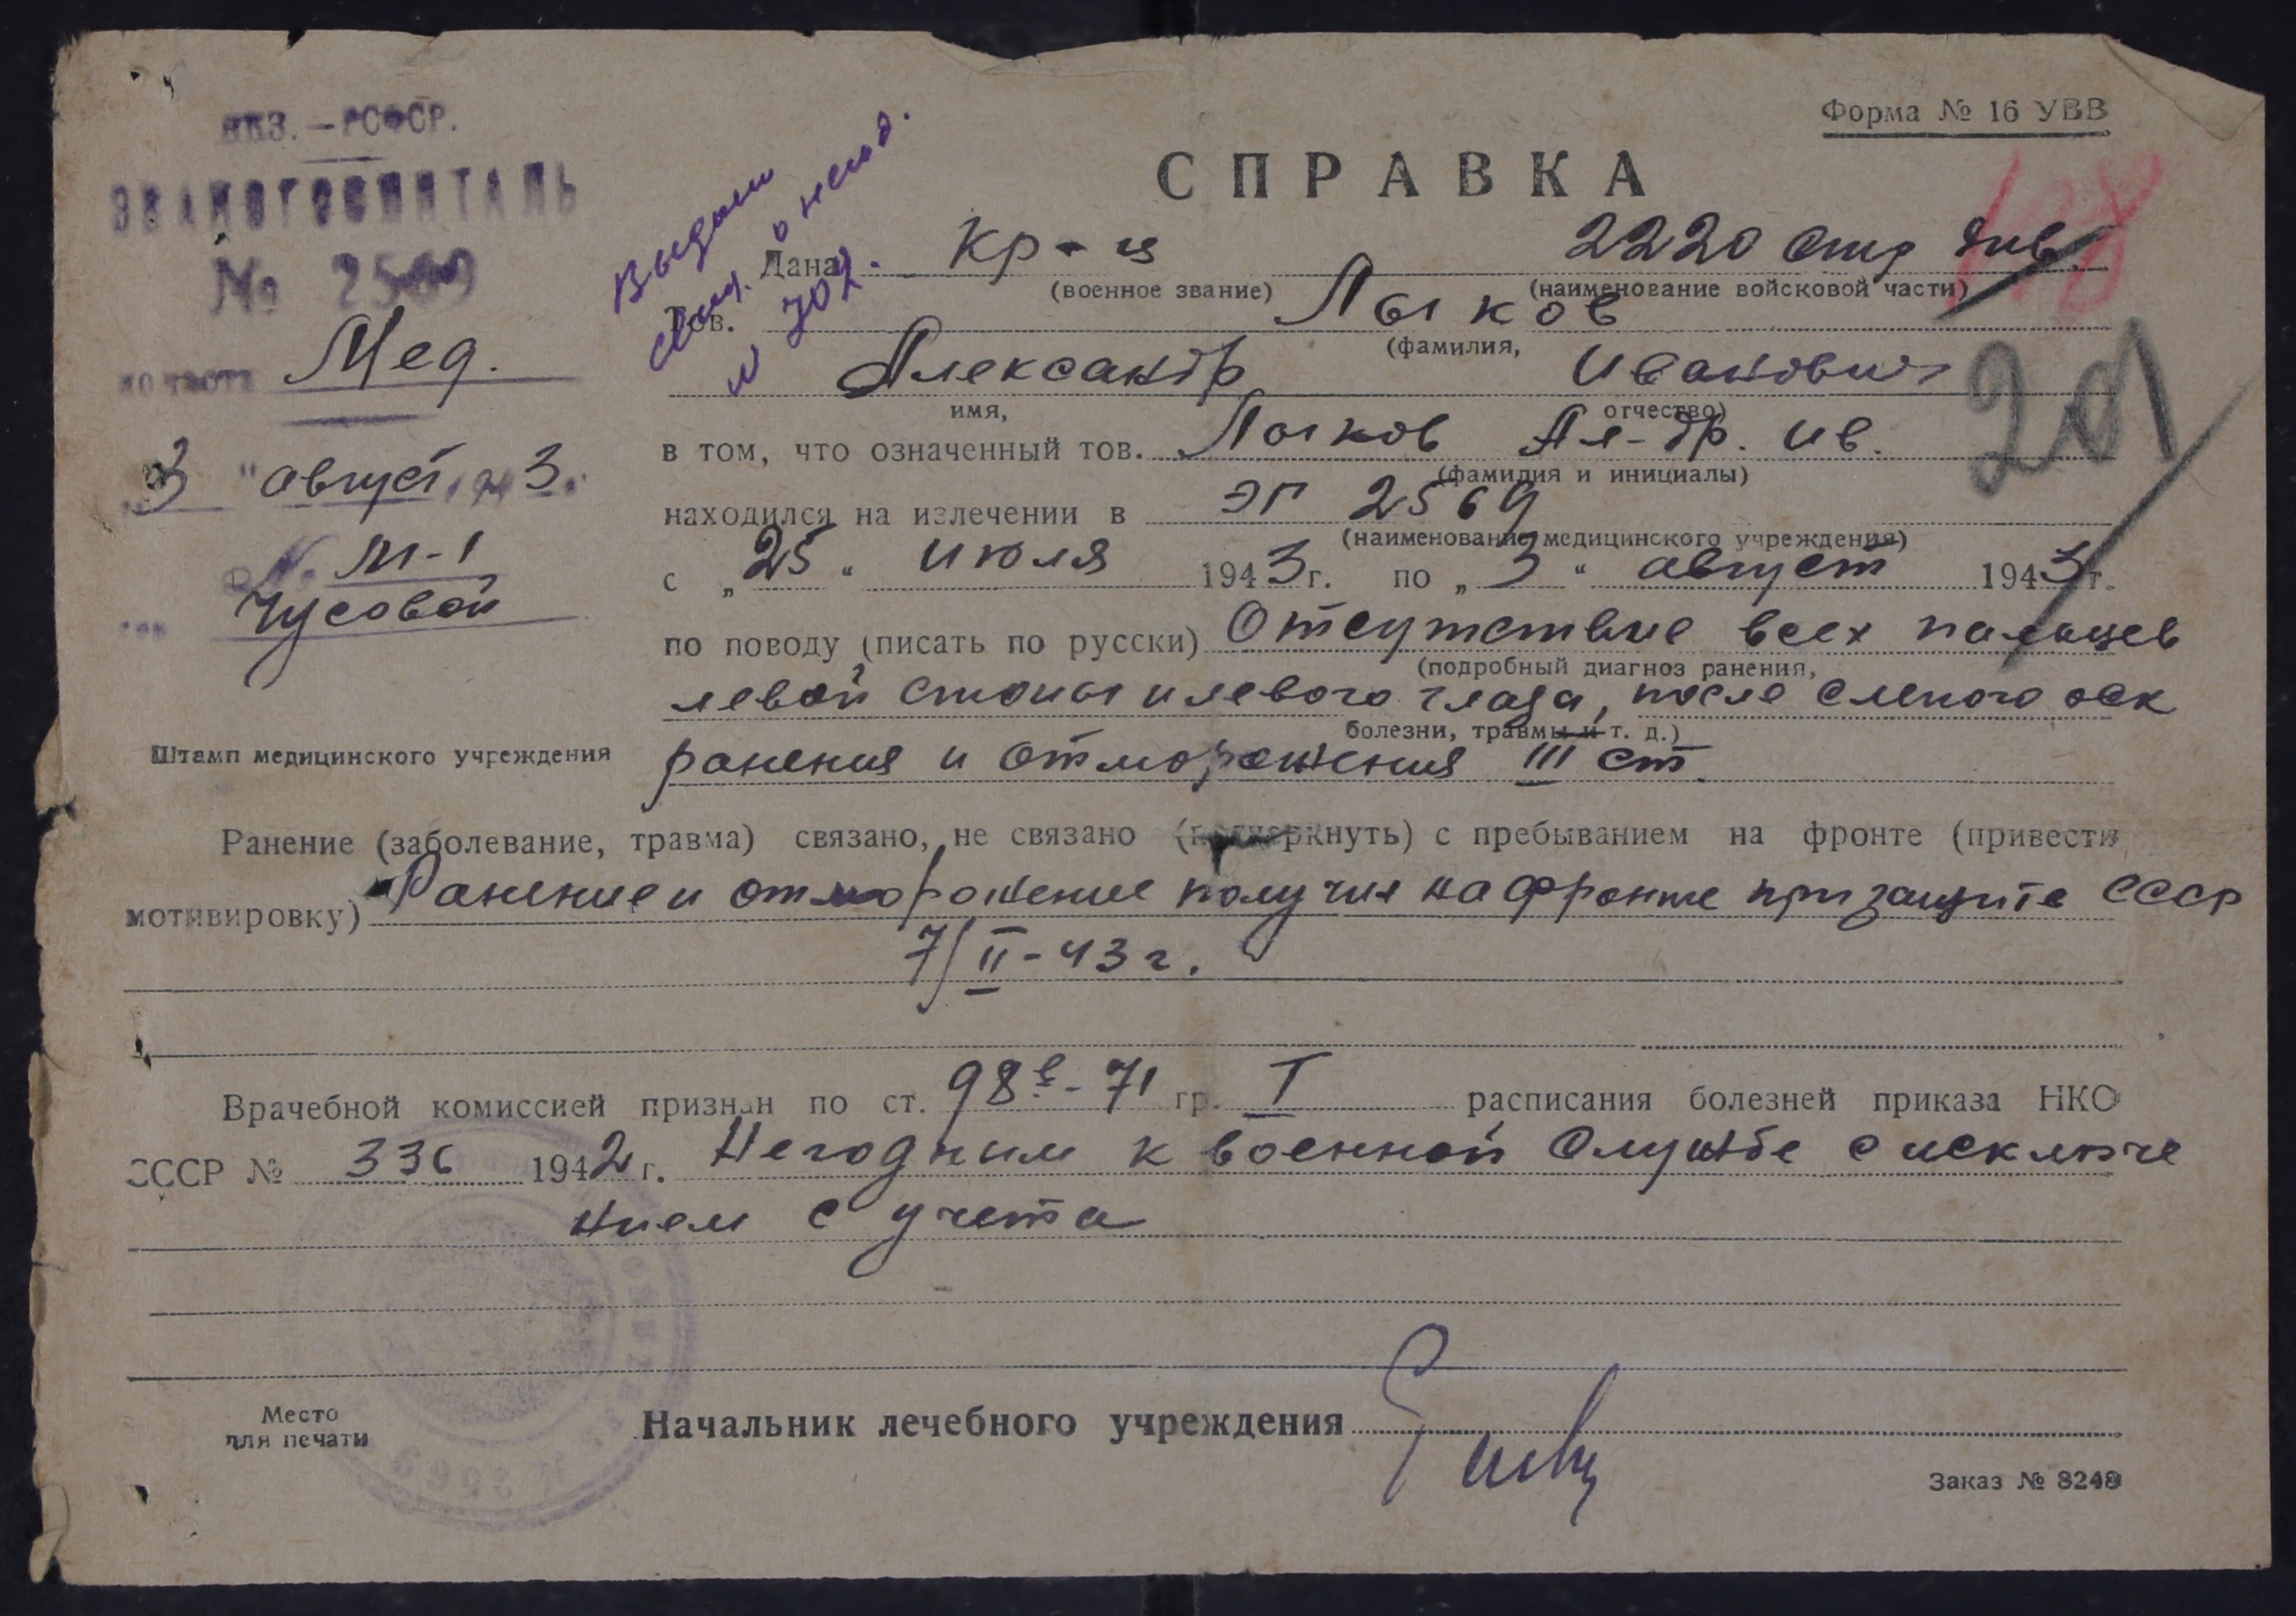 НКЗ. — РСФСР.
ЭВАКОГОСПИТАЛЬ
№ 2569
по части Мед.
"3" август 1943.
№ М-1
гор. Чусовой
Штамп медицинского учреждения
Выдано
свид. о негод.
№ 702.
Форма № 16 УВВ
СПРАВКА
Дана Кр-ц 2220 стр
(военное звание) (наименование войсковой части)
Тов. Лыков
(фамилия,
Александр Иванович
имя, отчество)
201
в том, что означенный тов. Лыков Ал-др. Ив.
(фамилия и инициалы)
находился на излечении в ЭГ 2569
(наименование медицинского учреждения)
с „25“ июля 1943 г. по „3“ август 1943 г.
по поводу (писать по русски) Отсутствие всех пальцев
(подробный диагноз ранения,
левой стопы и левого глаза, после слепого оск
болезни, травмы и т. д.)
ранения и отморожения III ст.
Ранение (заболевание, травма) связано, не связано (подчеркнуть) с пребыванием на фронте (привести
мотивировку) Ранение и отморожение получил на фронте при защите СССР
7/II-43 г.
Врачебной комиссией признан по ст. 98в-71 гр. I расписания болезней приказа НКО
СССР № 336 1942 г. Негодным к военной службе с исключе
нием с учета
Место
для печати
Начальник лечебного учреждения
Заказ № 8248